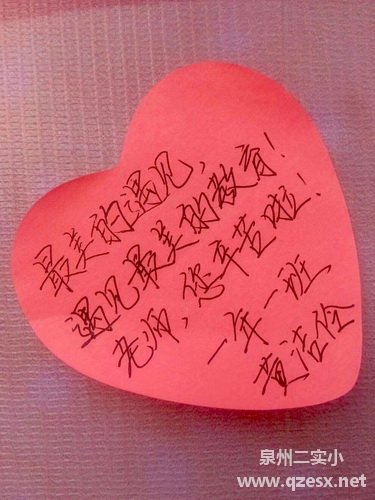 最美的遇见,
遇见最美的教育!
老师,您辛苦啦!
一年一班
黄洁伶
泉州二实小
www.qzesx.net